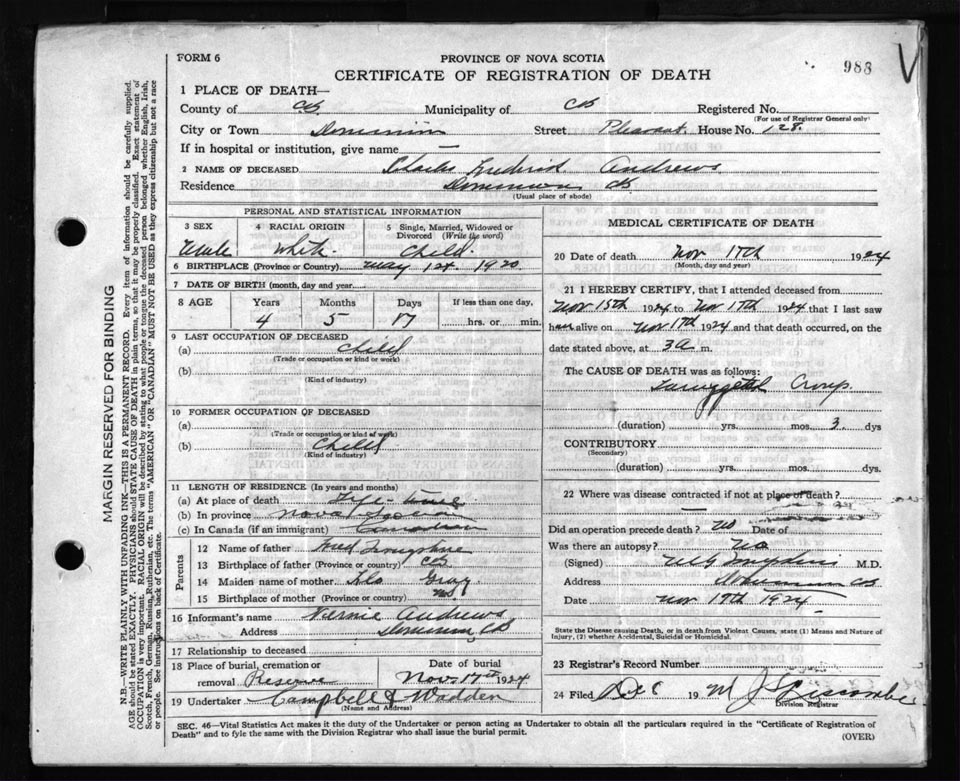 FORM 6
PROVINCE OF NOVA SCOTIA
983
V
CERTIFICATE OF REGISTRATION OF DEATH
1 PLACE OF DEATH—
County of CB. Municipality of CB Registered No.
(For use of Registrar General only)
City or Town Dominion Street Pleasant. House No. 128.
If in hospital or institution, give name —
2 NAME OF DECEASED Charles Frederick Andrews
Residence Dominion CB
(Usual place of abode)
PERSONAL AND STATISTICAL INFORMATION
3 SEX 4 RACIAL ORIGIN 5 Single, Married, Widowed or Divorced (Write the word)
Male White Child.
6 BIRTHPLACE (Province or Country) May 1920
7 DATE OF BIRTH (month, day and year)
8 AGE Years Months Days If less than one day,
4 5 17 hrs. or min.
9 LAST OCCUPATION OF DECEASED
(a) Child
(Trade or occupation or kind or work)
(b)
(Kind of industry)
10 FORMER OCCUPATION OF DECEASED
(a)
(Trade or occupation or kind of work)
(b) Child
(Kind of industry)
11 LENGTH OF RESIDENCE (In years and months)
(a) At place of death Life-time
(b) In province Nova Scotia
(c) In Canada (if an immigrant) Canadian
Parents
12 Name of father Fred
13 Birthplace of father (Province or country) CB
14 Maiden name of mother Gray
15 Birthplace of mother (Province or country) NS
16 Informant's name Andrews
Address Dominion CB
17 Relationship to deceased
18 Place of burial, cremation or removal Reserve
Date of burial Nov. 17th 1924
19 Undertaker Campbell & Wadden
(Name and Address)
MEDICAL CERTIFICATE OF DEATH
20 Date of death Nov 17th 1924
(Month, day and year)
21 I HEREBY CERTIFY, that I attended deceased from
Nov 15th 1924 to Nov 17th 1924 that I last saw
him alive on Nov 17th 1924 and that death occurred, on the
date stated above, at 3 a m.
The CAUSE OF DEATH was as follows:
Croup
(duration) yrs. mos. 3 dys
CONTRIBUTORY
(Secondary)
(duration) yrs. mos. ds.
22 Where was disease contracted if not at place of death?
Did an operation precede death? No Date of
Was there an autopsy? No
(Signed) M.D.
Address Dominion CB
Date Nov 17th 1924
State the Disease causing Death, or in death from Violent Causes, state (1) Means and Nature of
Injury, (2) whether Accidental, Suicidal or Homicidal.
23 Registrar's Record Number
24 Filed Dec 1924
Division Registrar
SEC. 46—Vital Statistics Act makes it the duty of the Undertaker or person acting as Undertaker to obtain all the particulars required in the "Certificate of Registration of
Death" and to fyle the same with the Division Registrar who shall issue the burial permit.
(OVER)
MARGIN RESERVED FOR BINDING
N.B.—WRITE PLAINLY WITH UNFADING INK—THIS IS A PERMANENT RECORD. Every item of information should be carefully supplied.
AGE should be stated EXACTLY. PHYSICIANS should STATE CAUSE OF DEATH in plain terms, so that it may be properly classified. Exact statement of
OCCUPATION is very important. RACIAL ORIGIN will be described by stating to what people or tongue the deceased person belonged whether English, Irish,
Scotch, French, German, Russian, Ruthenian, etc. The terms "AMERICAN" OR "CANADIAN" MUST NOT BE USED as they express citizenship but not a race
or people. See instructions on back of Certificate.